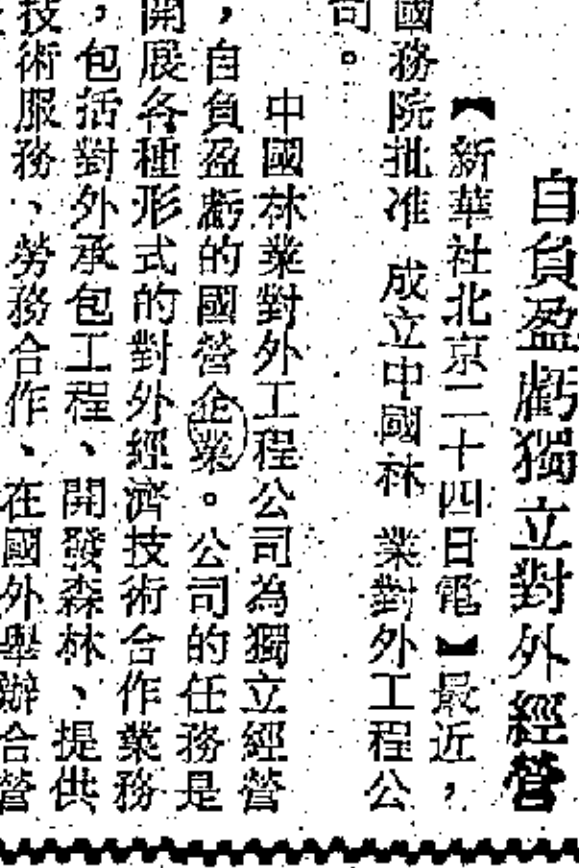 自負盈虧獨立對外經營
【新華社北京二十四日電】最近，
國務院批准 成立中國林 業對外工程公
司。
中國林業對外工程公司為獨立經營
，自負盈虧的國營企業。公司的任務是
開展各種形式的對外經濟技術合作業務
，包括對外承包工程、開發森林、提供
技術服務、勞務合作、在國外舉辦合營